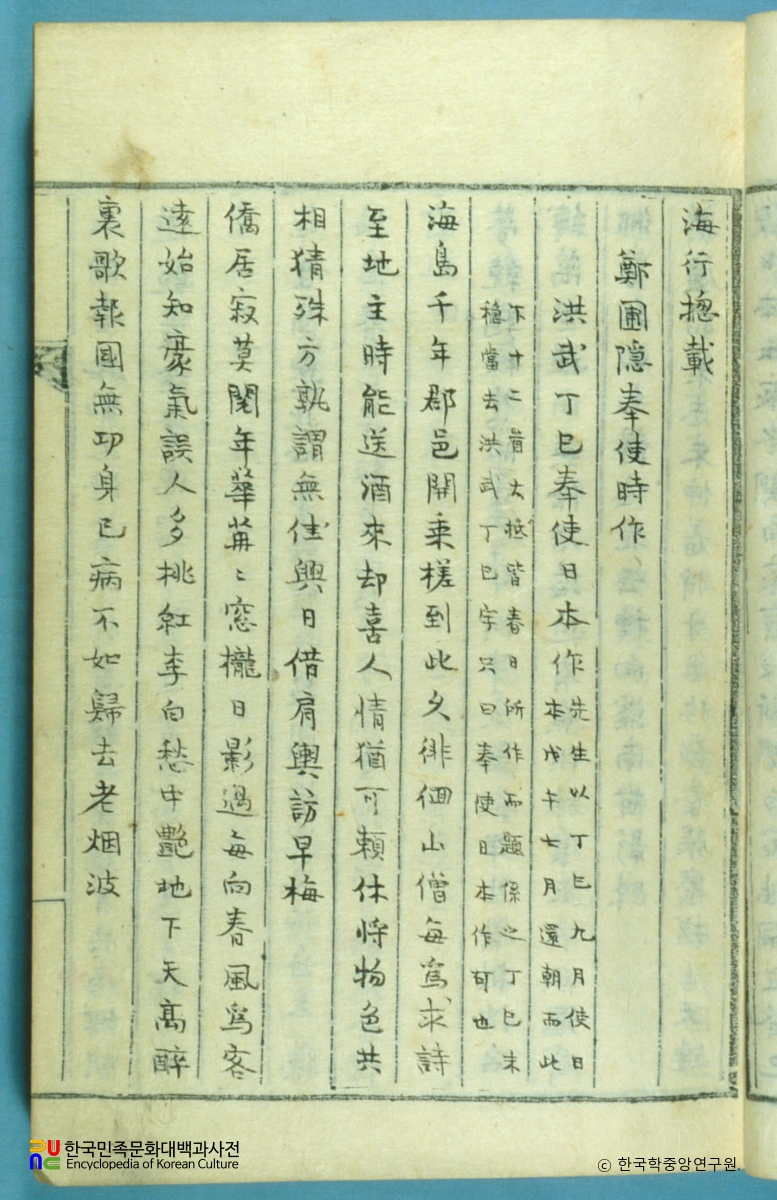 海行摠載
鄭圃隱奉使時作
洪武丁巳奉使日本作 先生以丁巳九月使日
本戊午七月還朝而此
下十二首大抵皆春日所作而題係之丁巳未
穩當去洪武丁巳字只曰奉使日本作可也
海島千年郡邑開乘槎到此久徘徊山僧每爲求詩
至地主時能送酒來却喜人情猶可賴休將物色共
相猜殊方孰謂無佳興日借肩輿訪早梅
僑居寂莫閱年華苒〻窓櫳日影過每向春風爲客
遠始知豪氣誤人多桃紅李白愁中艶地下天高醉
裏歌報國無功身已病不如歸去老烟波
한국민족문화대백과사전
Encyclopedia of Korean Culture
ⓒ 한국학중앙연구원.